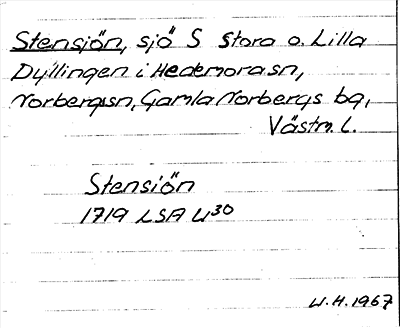 Stensjön, sjö S Stora o. Lilla
Dyllingen i Hedemorasn,
Norbergssn, Gamla Norbergs bg,
Västm. l.
Stensiön
1719 LSA U30
W.H. 1967